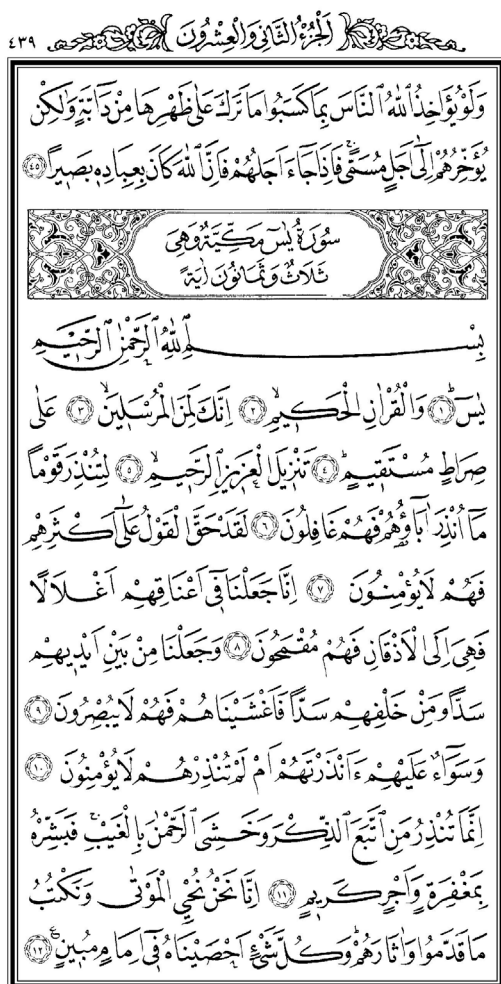 ٤٣٩ اَلْجُزْءُ الثَّانِي وَالْعِشْرُونَ
وَلَوْ يُؤَاخِذُ اللّٰهُ النَّاسَ بِمَا كَسَبُوا مَا تَرَكَ عَلٰى ظَهْرِهَا مِنْ دَٓابَّةٍ وَلٰكِنْ
يُؤَخِّرُهُمْ اِلٰٓى اَجَلٍ مُسَمًّىۚ فَاِذَا جَٓاءَ اَجَلُهُمْ فَاِنَّ اللّٰهَ كَانَ بِعِبَادِه۪ بَص۪يرًا ﴿٤٥﴾
سُورَةُ يٰسٓ مَكِّيَّةٌ وَهِيَ
ثَلَاثٌ وَثَمَانُونَ اٰيَةً
بِسْمِ اللّٰهِ الرَّحْمٰنِ الرَّح۪يمِ
يٰسٓۜ ﴿١﴾ وَالْقُرْاٰنِ الْحَك۪يمِۙ ﴿٢﴾ اِنَّكَ لَمِنَ الْمُرْسَل۪ينَۙ ﴿٣﴾ عَلٰى
صِرَاطٍ مُسْتَق۪يمٍۜ ﴿٤﴾ تَنْز۪يلَ الْعَز۪يزِ الرَّح۪يمِۙ ﴿٥﴾ لِتُنْذِرَ قَوْمًا
مَٓا اُنْذِرَ اٰبَٓاؤُ۬هُمْ فَهُمْ غَافِلُونَ ﴿٦﴾ لَقَدْ حَقَّ الْقَوْلُ عَلٰٓى اَكْثَرِهِمْ
فَهُمْ لَا يُؤْمِنُونَ ﴿٧﴾ اِنَّا جَعَلْنَا ف۪ٓي اَعْنَاقِهِمْ اَغْلَالًا
فَهِيَ اِلَى الْاَذْقَانِ فَهُمْ مُقْمَحُونَ ﴿٨﴾ وَجَعَلْنَا مِنْ بَيْنِ اَيْد۪يهِمْ
سَدًّا وَمِنْ خَلْفِهِمْ سَدًّا فَاَغْشَيْنَاهُمْ فَهُمْ لَا يُبْصِرُونَ ﴿٩﴾
وَسَوَٓاءٌ عَلَيْهِمْ ءَاَنْذَرْتَهُمْ اَمْ لَمْ تُنْذِرْهُمْ لَا يُؤْمِنُونَ ﴿١٠﴾
اِنَّمَا تُنْذِرُ مَنِ اتَّبَعَ الذِّكْرَ وَخَشِيَ الرَّحْمٰنَ بِالْغَيْبِۚ فَبَشِّرْهُ
بِمَغْفِرَةٍ وَاَجْرٍ كَر۪يمٍ ﴿١١﴾ اِنَّا نَحْنُ نُحْيِ الْمَوْتٰى وَنَكْتُبُ
مَا قَدَّمُوا وَاٰثَارَهُمْۜ وَكُلَّ شَيْءٍ اَحْصَيْنَاهُ ف۪ٓي اِمَامٍ مُب۪ينٍ۟ ﴿١٢﴾